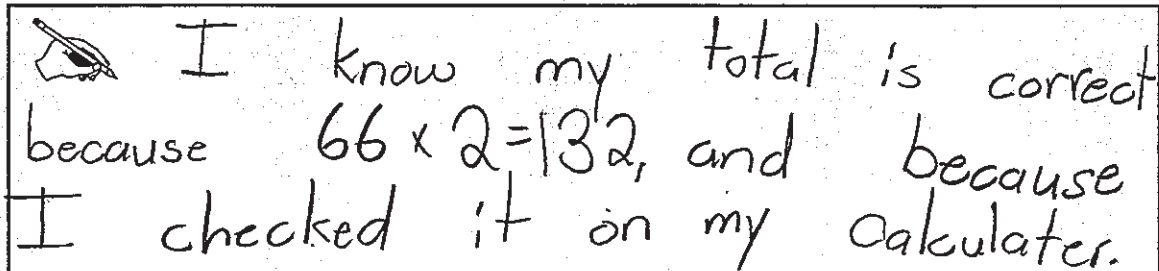 I know my total is correct
because 66 x 2 = 132, and because
I checked it on my calculater.